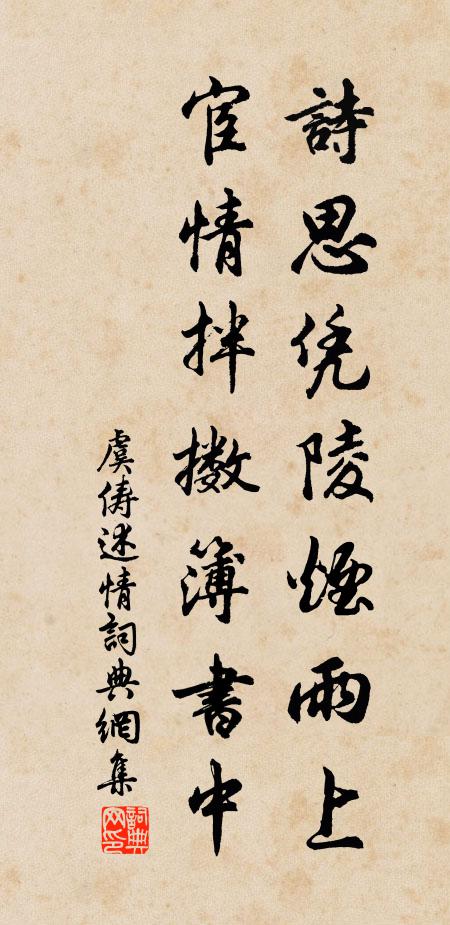 詩思凭陵煙雨上
宦情拌擻簿書中
虞儔述情詞典網集
詞典网印